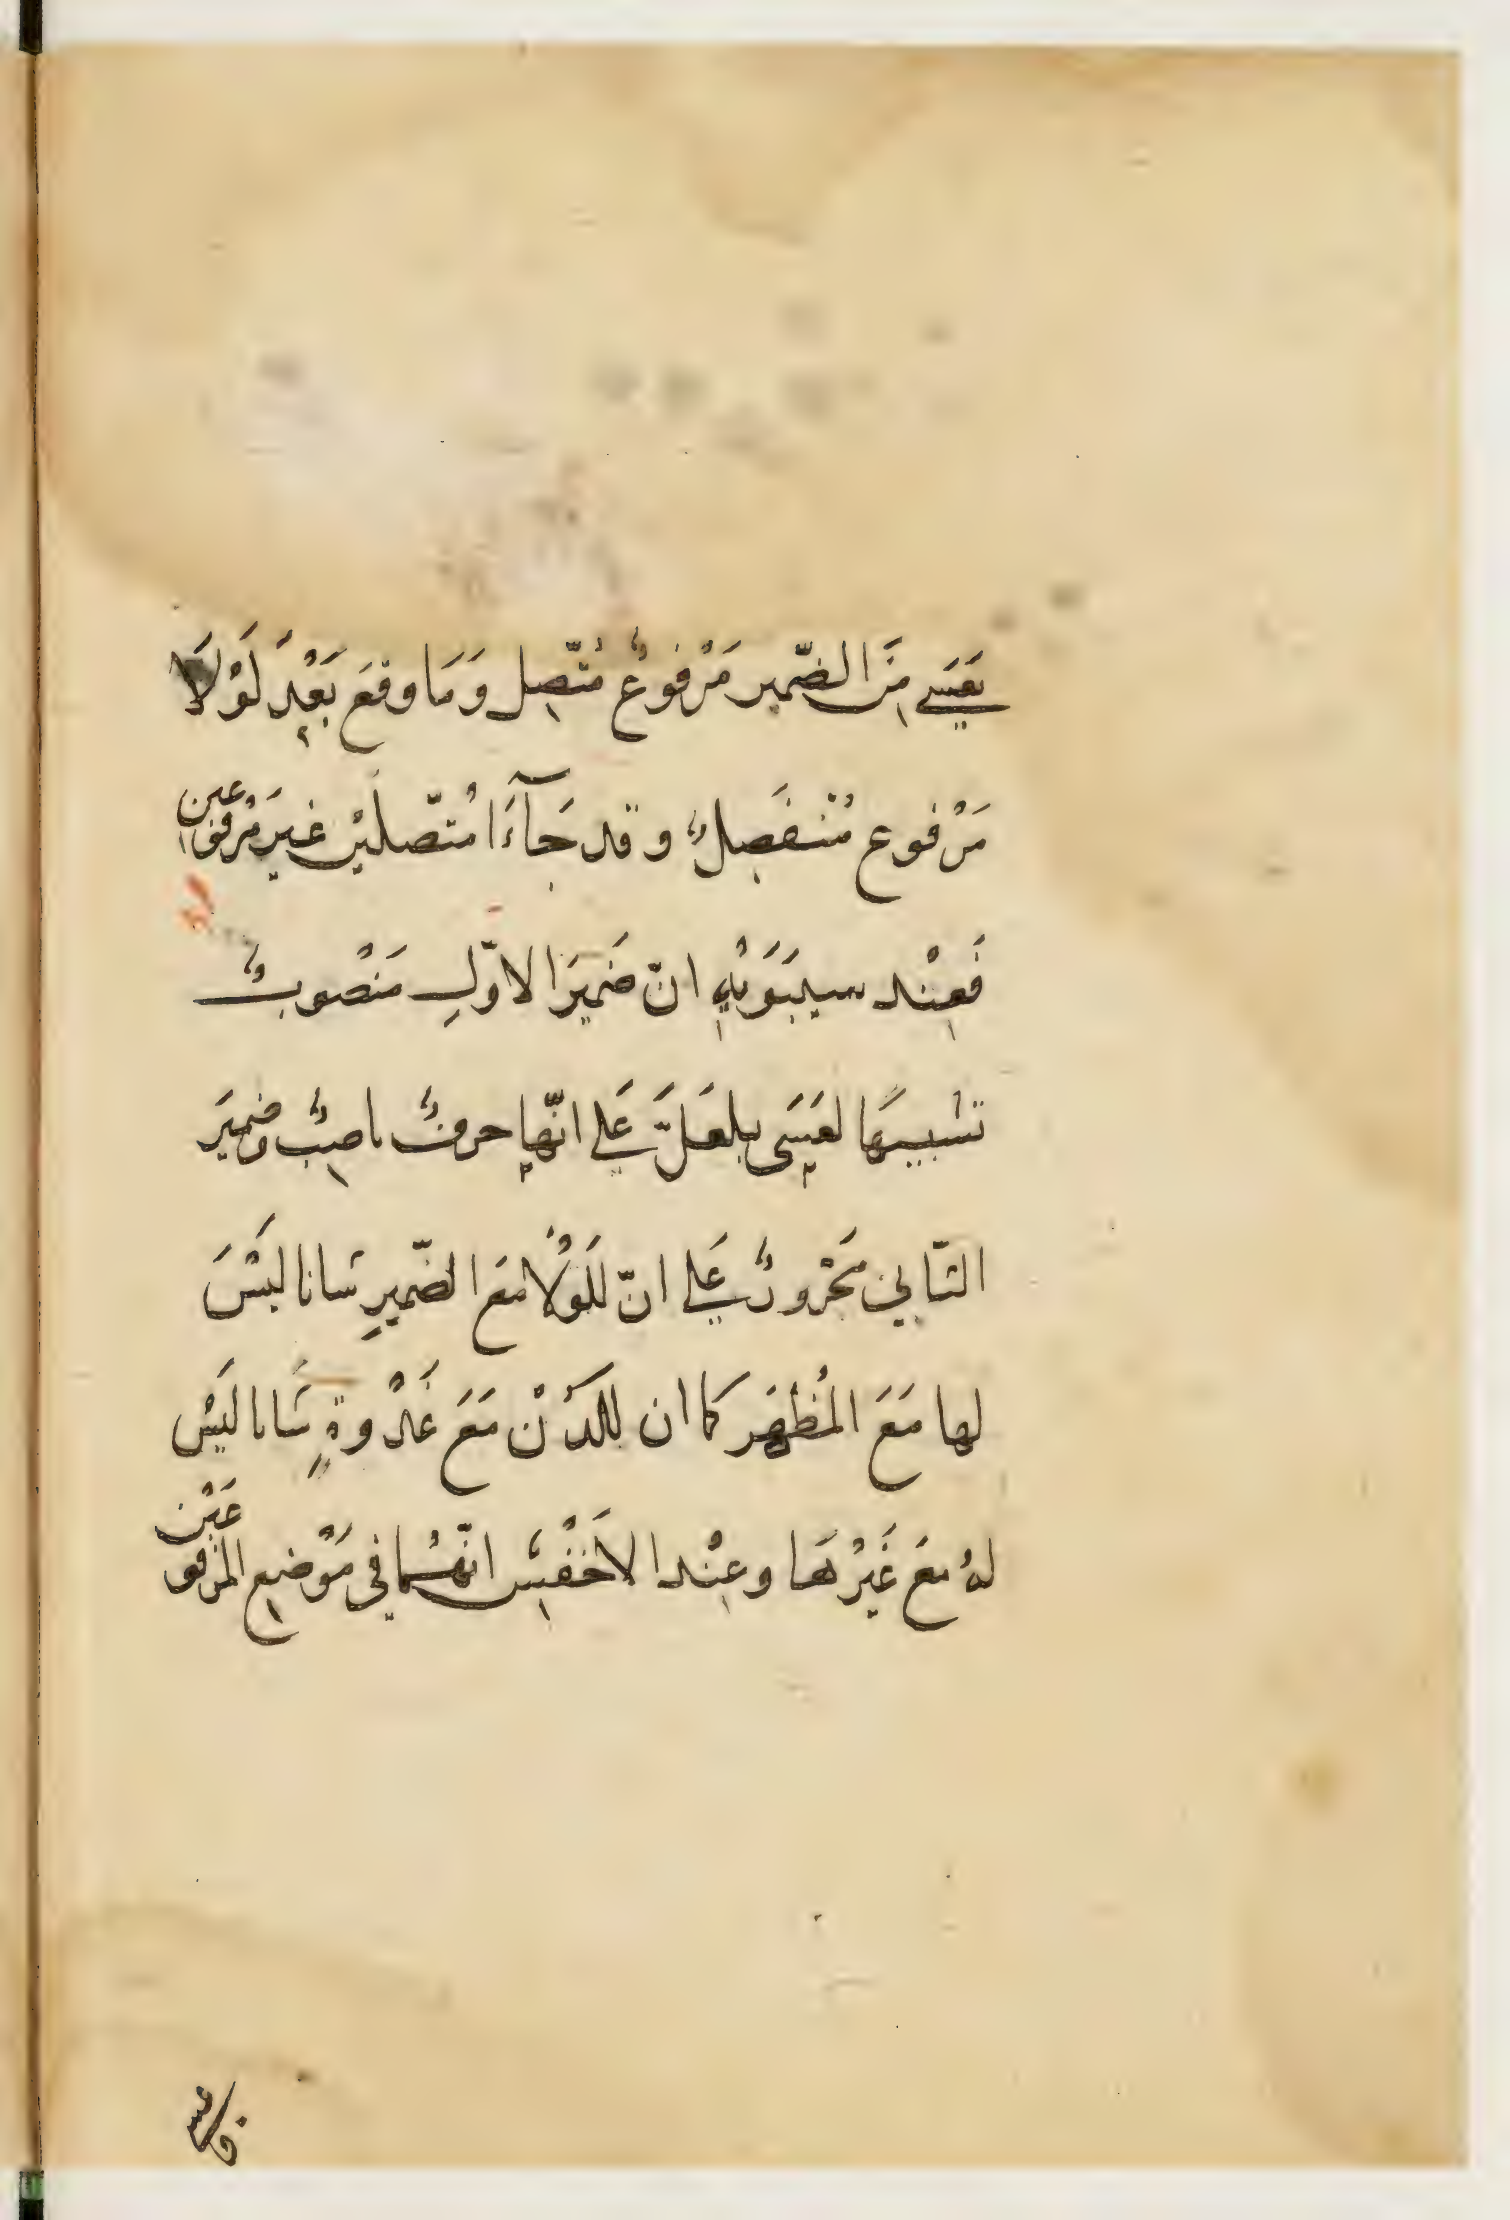 بعَسَى مِنَ الضّمير مَرْفوعٌ مُتّصِل وَمَا وقعَ بَعْدَ لَوْلَا
مَرْفوع مُنْفَصِلٌ وقد جَآءَا مُتّصلَيْن غيرَ مَرْفوعين
فَعِنْد سيبَوَيْهِ انّ ضَميرَ الاوّلِ مَنْصُوبٌ
تشبيهًا لعَسَى بلعَلَّ عَلى انّها حرفٌ ناصِبٌ وضميرَ
الثّاني مَجْرورٌ عَلى انّ للَوْلَا مَعَ الضّميرِ شانا ليْسَ
لها مَعَ المُظْهَر كما ان للدَنْ مَعَ غَدْوةٍ شَانا لَيْسَ
لهُ معَ غَيْرهَا وعِنْد الاَخفْشِ انّهُما في مَوْضِع المَرْفوعَيْن
فان عسى